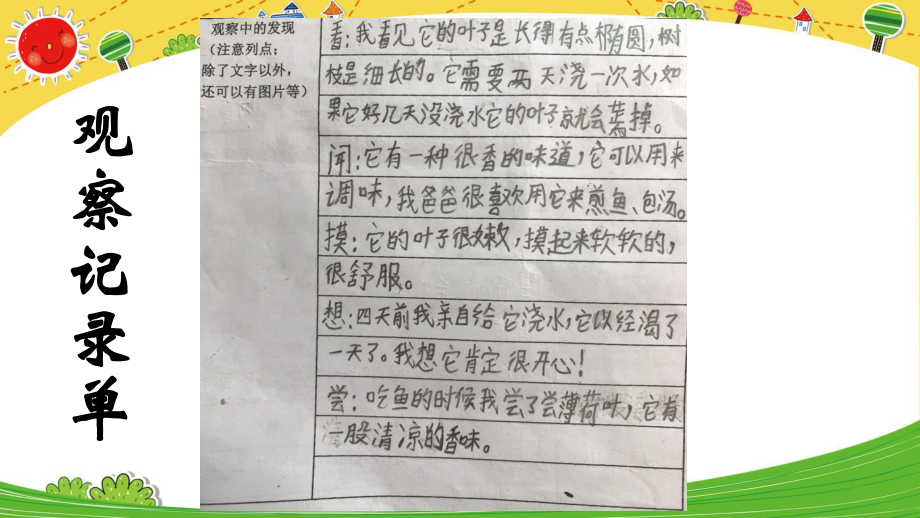 观察记录单
观察中的发现
（注意列点；
除了文字以外，
还可以有图片等）
看：我看见它的叶子是长得有点椭圆，树
枝是细长的。它需要两天浇一次水，如
果它好几天没浇水它的叶子就会蔫掉。
闻：它有一种很香的味道，它可以用来
调味，我爸爸很喜欢用它来煎鱼、包汤。
摸：它的叶子很嫩，摸起来软软的，
很舒服。
想：四天前我亲自给它浇水，它以经渴了
一天了。我想它肯定很开心！
尝：吃鱼的时候我尝了尝薄荷叶，它有
一股清凉的香味。